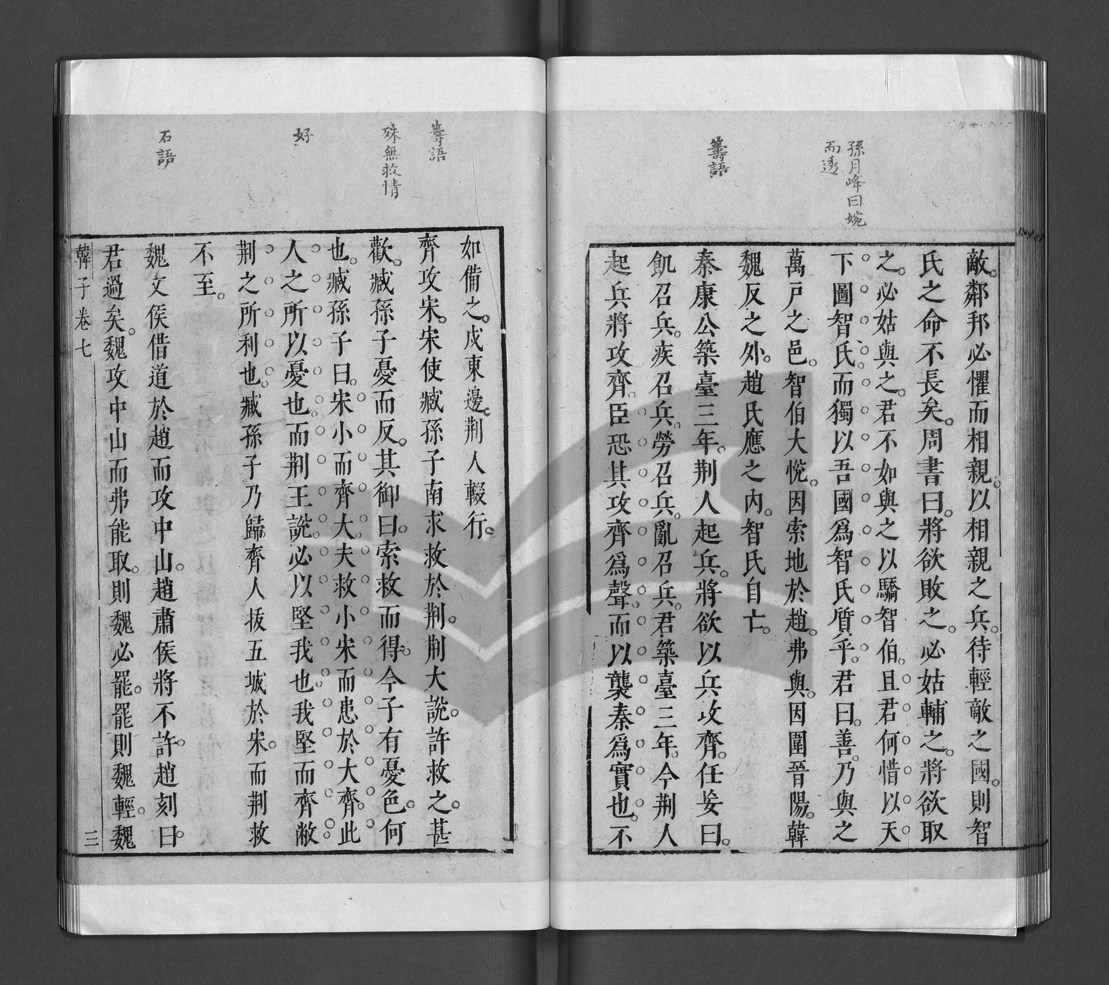 孫月峰曰婉
而透
籌語
敵。鄰邦必懼而相親。以相親之兵。待輕敵之國。則智
氏之命不長矣。周書曰。將欲敗之。必姑輔之。將欲取
之。必姑與之。君不如與之以驕智伯。且君何惜以天
下圖智氏。而獨以吾國爲智氏質乎。君曰。善。乃與之
萬戶之邑。智伯大悅。因索地於趙。弗與。因圍晉陽。韓
魏反之外。趙氏應之內。智氏自亡。
秦康公築臺三年。荆人起兵。將欲以兵攻齊。任妄曰。
飢召兵。疾召兵。勞召兵。亂召兵。君築臺三年。今荆人
起兵將攻齊。臣恐其攻齊爲聲。而以襲秦爲實也。不
籌語
殊無救情
好
石語
如備之。戍東邊。荆人輟行。
齊攻宋。宋使臧孫子南求救於荆。荆大說。許救之。甚
歡。臧孫子憂而反。其御曰。索救而得。今子有憂色。何
也。臧孫子曰。宋小而齊大。夫救小宋而患於大齊。此
人之所以憂也。而荆王說。必以堅我也。我堅而齊敝
荆之所利也。臧孫子乃歸。齊人拔五城於宋。而荆救
不至。
魏文侯借道於趙而攻中山。趙肅侯將不許。趙刻曰。
君過矣。魏攻中山而弗能取。則魏必罷。罷則魏輕。魏
韓子卷七
三